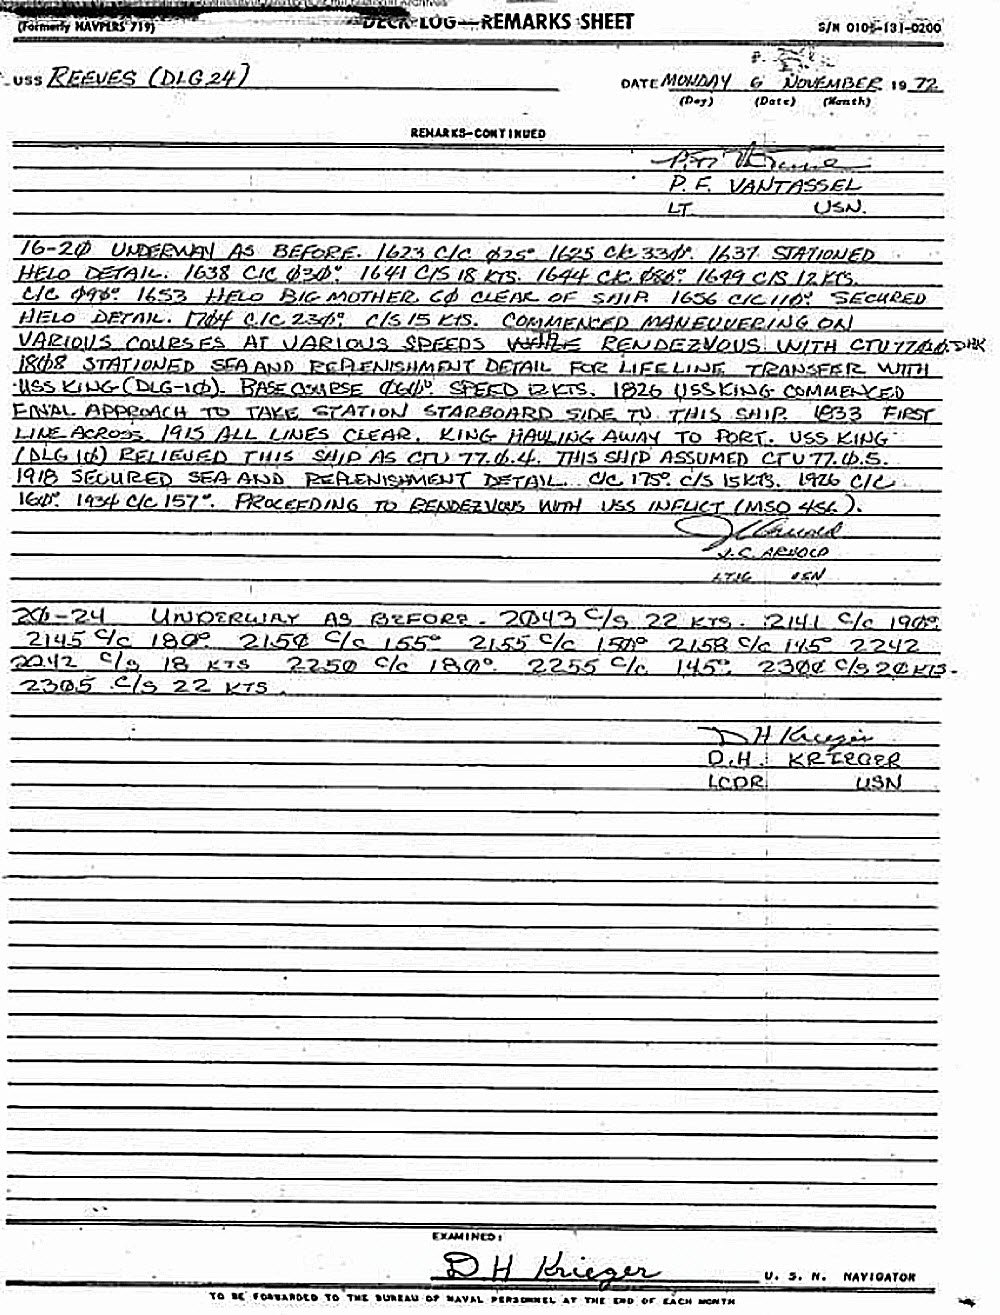 (Formerly NAVPERS 719)
DECK LOG—REMARKS SHEET
S/N 0105-131-0200
USS REEVES (DLG 24)
DATE MONDAY 6 NOVEMBER 19 72
(Day) (Date) (Month)
REMARKS-CONTINUED
P. F. VANTASSEL
LT USN.
16-20 UNDERWAY AS BEFORE. 1623 C/C 025° 1625 C/C 330°. 1637 STATIONED
HELO DETAIL. 1638 C/C 030° 1641 C/S 18 KTS. 1644 C/C 1649 C/S 12 KTS.
C/C 090° 1653 HELO BIG MOTHER 60 CLEAR OF SHIP 1656 C/C 110° SECURED
HELO DETAIL. 1704 C/C 230° C/S 15 KTS. COMMENCED MANEUVERING ON
VARIOUS COURSES AT VARIOUS SPEEDS WHILE RENDEZVOUS WITH CTU DHK
1808 STATIONED SEA AND REPLENISHMENT DETAIL FOR LIFELINE TRANSFER WITH
USS KING (DLG-10). BASE COURSE 060° SPEED 12 KTS. 1826 USS KING COMMENCED
FINAL APPROACH TO TAKE STATION STARBOARD SIDE TO THIS SHIP. 1833 FIRST
LINE ACROSS 1915 ALL LINES CLEAR. KING HAULING AWAY TO PORT. USS KING
(DLG 10) RELIEVED THIS SHIP AS CTU 77.0.4. THIS SHIP ASSUMED CTU 77.0.5.
1918 SECURED SEA AND REPLENISHMENT DETAIL. C/C 175° C/S 15 KTS. 1926 C/C
160° 1934 C/C 157°. PROCEEDING TO RENDEZVOUS WITH USS INFLICT (MSO 456).
J. C. ARNOLD
LTJG USN
20-24 UNDERWAY AS BEFORE. 2043 C/S 22 KTS. 2141 C/C 190°.
2145 C/C 180° 2150 C/C 155° 2155 C/C 150° 2158 C/C 145° 2242
2242 C/S 18 KTS 2250 C/C 180°. 2255 C/C 145°. 2300 C/S 20 KTS.
2305 C/S 22 KTS.
D H Krieger
D.H. KRIEGER
LCDR USN
EXAMINED:
D H Krieger U. S. N. NAVIGATOR
TO BE FORWARDED TO THE BUREAU OF NAVAL PERSONNEL AT THE END OF EACH MONTH